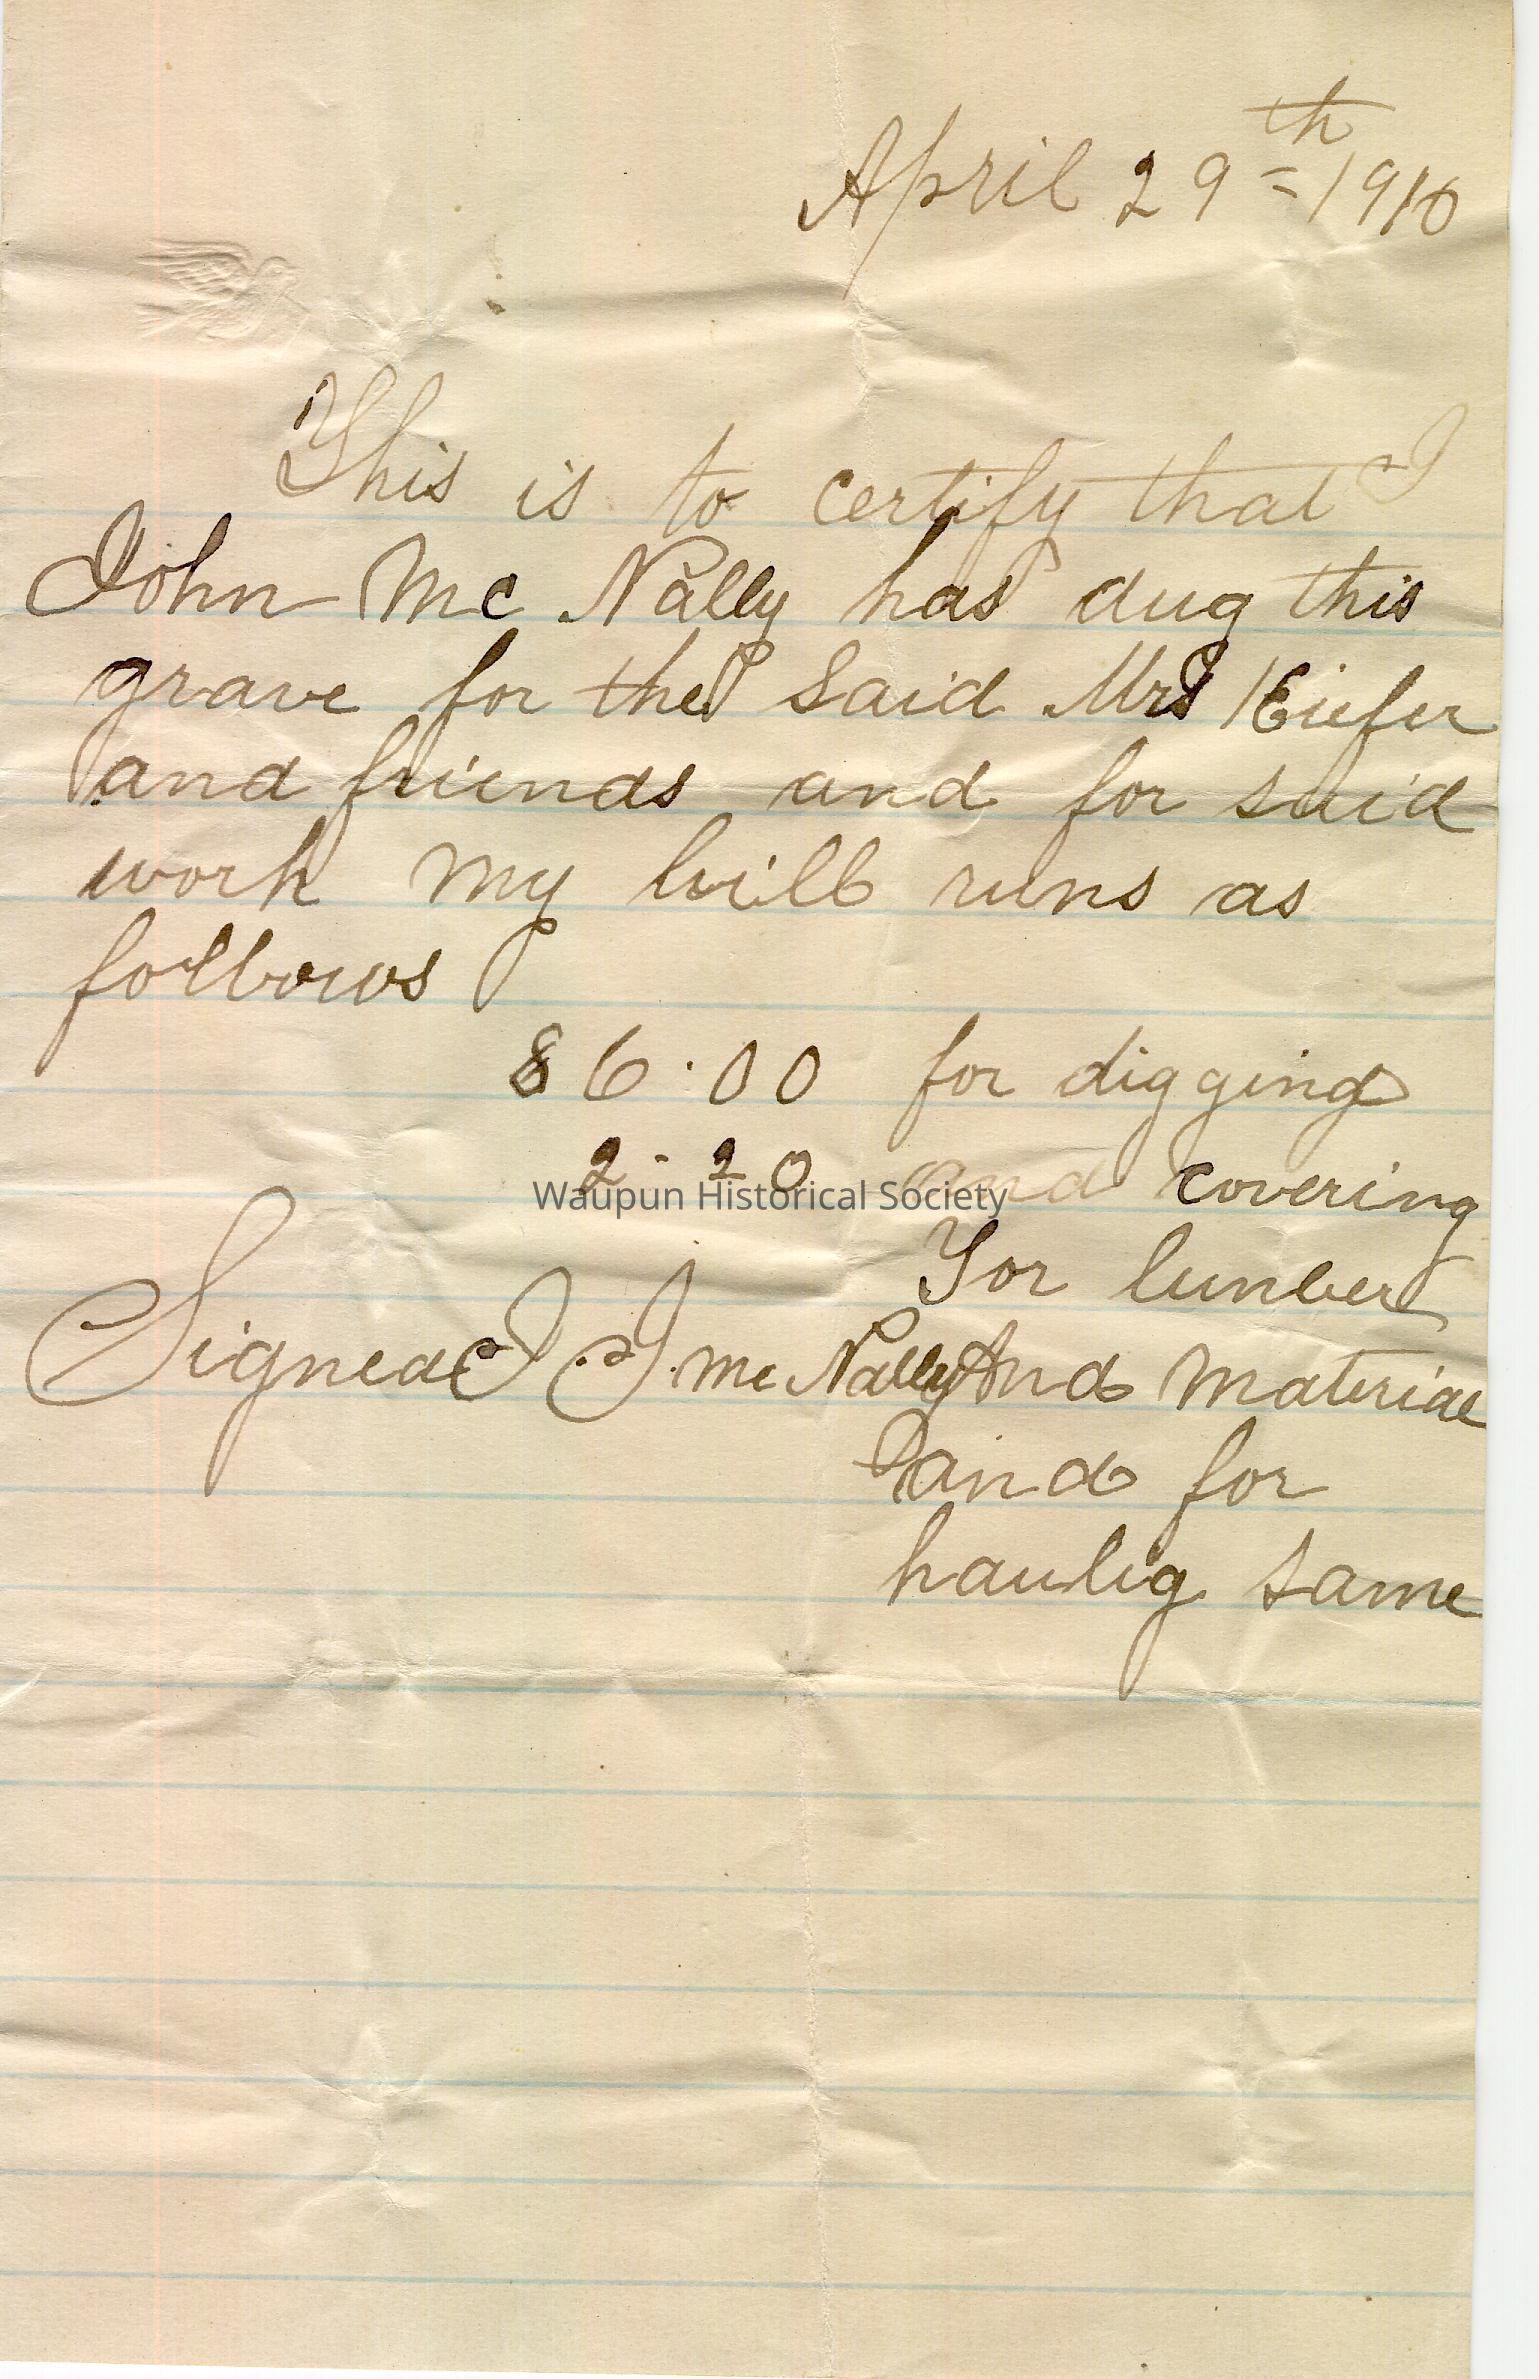 April 29th 1910
This is to certify that I
John Mc Nally has dug this
grave for the said Mrs Kiefer
and friends and for said
work my bill runs as
follows
$6.00 for digging
2-20 and covering
Waupun Historical Society
For lumber
Signed J. Mc Nally And material
and for
haulig same